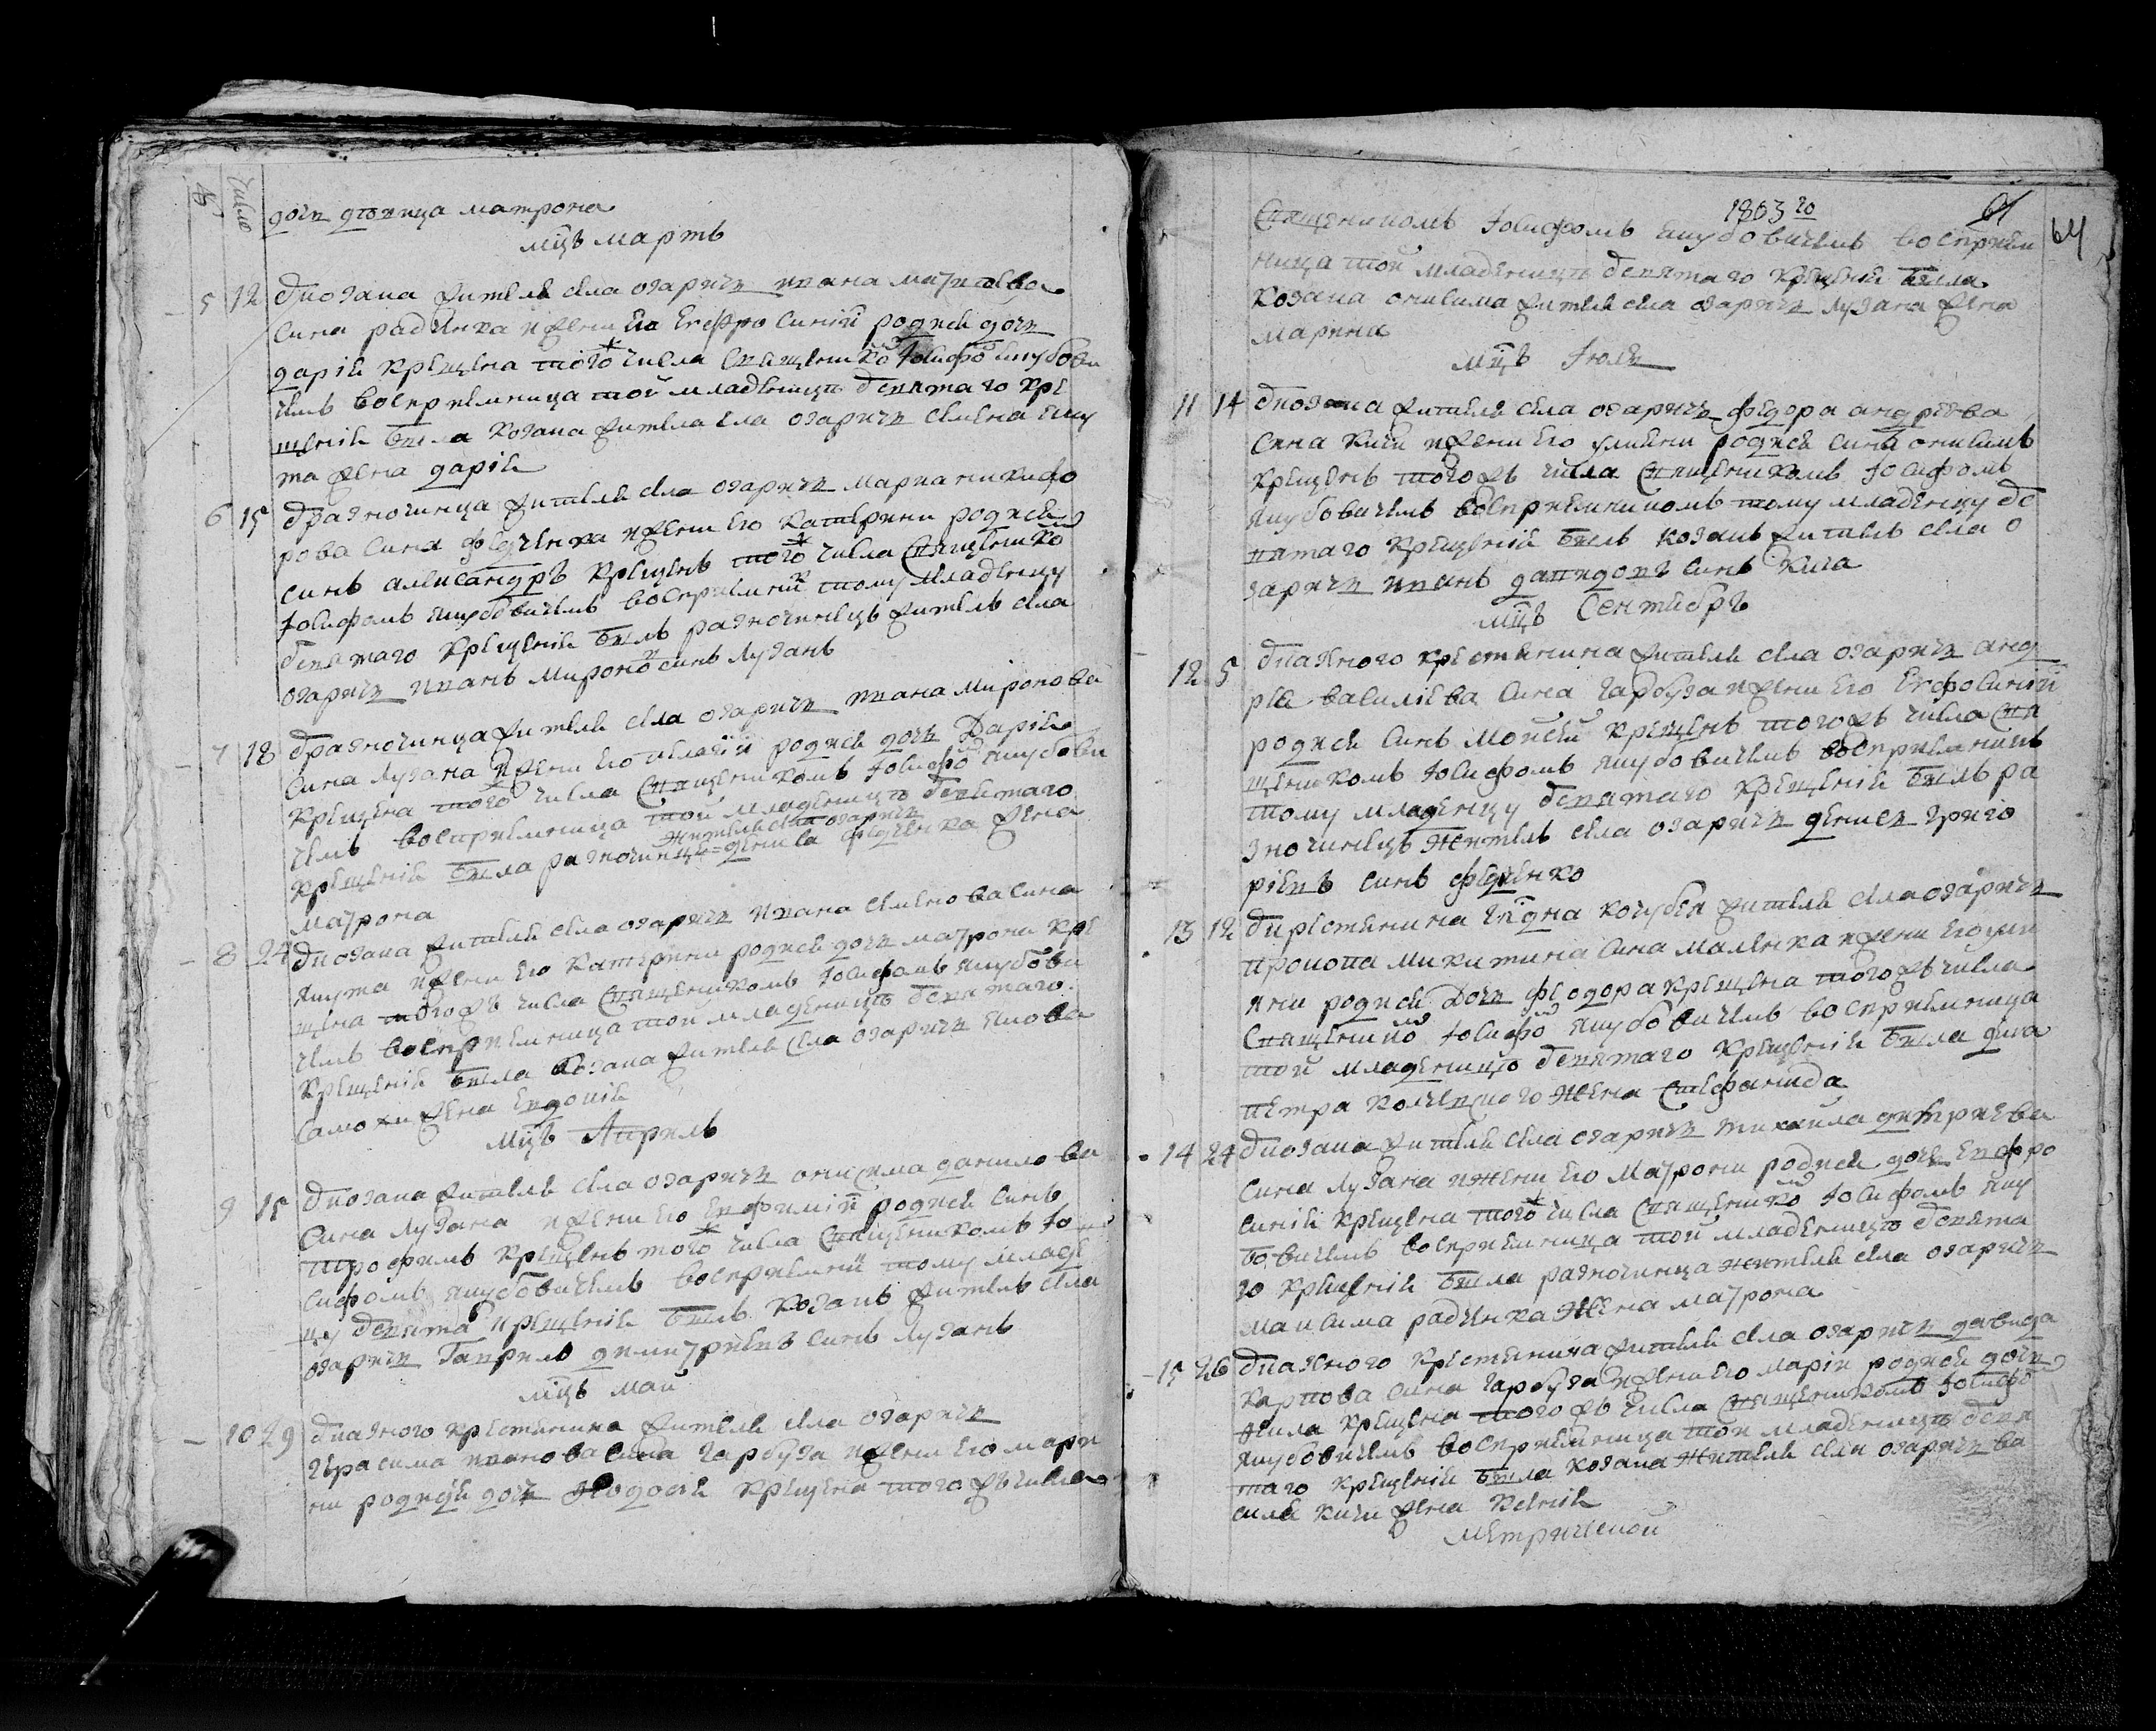 №
Число
дочъ девица матрона
мцъ мартъ
5 12 Вкозака жителя села озаричъ ивана матвѣева
сина радченка ижени его Евфросинiи родися дочъ
дарiя крещена того ж числа священико м Iосифо м якубови
чемъ восприемница той младеницѣ Святаго кре
щенiя била козака жителя села озаричъ семена яку
та жена дарiя
6 15 Вразночинца жителя села озаричъ марка никифо
рова сина федченка ижени его катерини родися
синъ александръ крещенъ того ж числа священико м
Iосифомъ якубовичемъ восприемни к тому младенцу
Святаго крещенiя билъ разночинецъ житель села
озаричъ иванъ мироно в синъ лузанъ
7 18 Вразночинца жителя села озаричъ ивана миронова
сина лузана ижени его пелагiи родися дочъ Дарiя
крещена того числа священикомъ Iосифо м якубови
чемъ восприемница той младеницѣ Святаго
жителя села озаричъ
крещенiя била разночинца дениса федченка жена
матрона
8 24 Вкозака жителя села озаричъ ивана семенова сина
якута ижени его катерини родися дочъ матрона кре
щена тогожъ числа священикомъ Iосифомъ якубови
чемъ восприемница той младеницѣ Святаго
крещенiя била козака жителя села озаричъ якова
самохи жена Евдокiя
мцъ Априль
9 15 Вкозака жителя села озаричъ онисима данилова
сина лузана ижени его Евфимiи родися синъ
трофимъ крещенъ того ж числа священикомъ Iо
сифомъ якубовичемъ восприемни к тому младе
цу Святаго крещенiя билъ козакъ житель села
озаричъ Гаврило димитрiевъ синъ лузанъ
мцъ май
10 29 Вказного крестянина жителя села озаричъ
герасима иванова сина гарбуза ижени его мари
ни родися дочъ Феодосiя крещена тогожъ числа
1803 го
64
64
Священикомъ Iосифомъ якубовичемъ восприем
ница той младеницѣ Святаго крещенiя била
козака онисима жителя села озаричъ лузана жена
марина
мцъ Iюль
11 14 Вкозака жителя села озаричъ федора андреева
сина кичи ижени его улияни родися синъ онисимъ
крещенъ тогожъ числа священикомъ Iосифомъ
якубовичемъ восприемникомъ тому младенцу С
вятаго крещенiя билъ козакъ житель села о
заричъ иванъ давидовъ синъ кича
мцъ Сентябръ
12 5 Вказного крестянина жителя села озаричъ анд
рея василiева сина гарбуза ижени его Евфросинiи
родися синъ мойсей крещенъ тогожъ числа свя
щеникомъ Iосифомъ якубовичемъ восприемникъ
тому младенцу Святаго крещенiя билъ ра
зночинецъ житель села озаричъ денисъ григо
рiевъ синъ федченко
13 12 Вкрестянина кочубея жителя села озаричъ
прокопа микитина сина маленка ижени его ули
яни родися дочъ феодора крещена тогожъ числа
священико м Iосифо м якубовичемъ восприемница
той младеницѣ Святаго крещенiя била дяка
петра жена стефанида
14 24 Вкозака жителя села озаричъ михайла дмитриева
сина лузана ижени его матрони родися дочъ Евфро
синiя крещена того ж числа священико м Iосифомъ яку
бовичемъ восприемница той младеницѣ Святa
го крещенiя била разночинца жителя села озаричъ
максима радченка жена матрона
15 26 Вказного крестянина жителя села озаричъ давида
карпова сина гарбуза ижени его марiи родися дочъ
крещена тогожъ числа священикомъ Iосифо м
якубовичемъ восприемница той младеницѣ Свя
таго крещенiя била козака жителя села озаричъ ва
силя кичи жена ксенiя
метрической